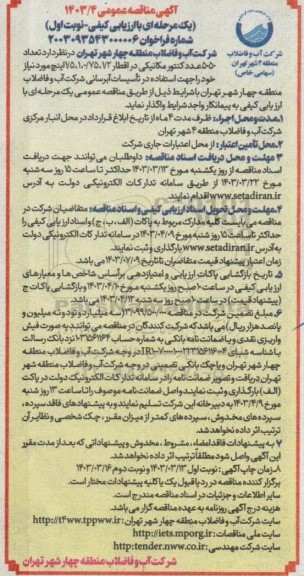 آگهی مناقصه عمومی ۱۴۰۳/۴
(یک مرحله‌ای با ارزیابی کیفی-نوبت اول)
شماره فراخوان ۲۰۰۳۰۹۳۵۴۳۰۰۰۰۰۶
شرکت آب و فاضلاب
منطقه ۴ شهر تهران
(سهامی خاص)
شرکت آب و فاضلاب منطقه چهار شهر تهران در نظر دارد تعداد
۵۵۰۰ عدد کنتور مکانیکی در اقطار
خود را جهت استفاده در تأسیسات آبرسانی شرکت آب و فاضلاب
منطقه چهار شهر تهران با شرایط ذیل از طریق مناقصه عمومی یک مرحله‌ای با
ارزیابی کیفی به پیمانکار واجد شرایط واگذار نماید.
۱.مدت و محل اجراء: ظرف مدت ۴ ماه از تاریخ ابلاغ قرارداد در محل انبار مرکزی
شرکت آب و فاضلاب منطقه ۴ شهر تهران
۲.محل تأمین اعتبار: از محل اعتبارات جاری شرکت
۳ مهلت و محل دریافت اسناد مناقصه: داوطلبان می‌توانند جهت دریافت
اسناد مناقصه از روز یکشنبه مورخ ۱۴۰۳/۰۳/۱۳ حداکثر تا ساعت ۱۵ روز سه شنبه
مورخ ۱۴۰۳/۰۳/۲۲ از طریق سامانه تدارکات الکترونیکی دولت به آدرس
www.setadiran.ir اقدام نمایند.
۴.مهلت و محل تحویل اسناد ارزیابی کیفی و اسناد مناقصه: متقاضیان شرکت در
مناقصه می‌بایست کلیه مدارک مربوط به پاکات (الف، ب، ج) و اسناد ارزیابی کیفی را
حداکثر تا ساعت ۱۵ روز شنبه مورخ ۱۴۰۳/۰۴/۰۹ در سامانه تدارکات الکترونیکی دولت
به آدرس www.setadiran.ir بارگذاری و ثبت نمایند.
زمان اعتبار پیشنهاد قیمت متقاضیان تا تاریخ ۱۴۰۳/۰۷/۰۹ می باشد.
۵. تاریخ بازگشایی پاکات ارزیابی و امتیازدهی براساس شاخص ها و معیارهای
ارزیابی کیفی در ساعت ۱۰ صبح روز یکشنبه مورخ ۱۴۰۳/۰۴/۱۰ و بازگشایی پاکات ج
(پیشنهاد قیمت) در ساعت ۱۰ صبح روز سه شنبه ۱۴۰۳/۰۴/۱۲ می باشد.
۶. مبلغ تضمین شرکت در مناقصه ۳/۰۹۹/۵۰۰/۰۰۰ (سه میلیارد و نود و نه میلیون و
پانصد هزار ریال) می باشد که شرکت کنندگان در مناقصه می توانند به صورت فیش
واریزی نقدی و یا ضمانت نامه بانکی به شماره حساب ۱۰۳۵۶۱۶۴ نزد بانک رسالت
در وجه شرکت آب و فاضلاب منطقه
چهار شهر تهران و یا چک بانکی تضمینی در وجه شرکت آب و فاضلاب منطقه شهر
تهران دریافت و تصویر ضمانت نامه را در سامانه تدارکات الکترونیک دولت در پاکت
(الف) بارگذاری و ثبت نمایند و اصل ضمانت نامه موصوف را تا ساعت ۱۳ روز شنبه
مورخ ۱۴۰۳/۰۴/۰۹ به دبیرخانه این شرکت تسلیم نمایند و به پیشنهاد های فاقد سپرده،
سپرده های مخدوش، سپرده های کمتر از میزان مقرر، چک شخصی و نظایر آن
ترتیب اثر داده نخواهد شد.
۷ به پیشنهادات فاقد امضاء، مشروط، مخدوش و پیشنهاداتی که بعد از مدت مقرر
این آگهی واصل شود مطلقاً ترتیب اثر داده نخواهد شد.
۸. زمان چاپ آگهی: نوبت اول ۱۴۰۳/۰۳/۱۳ و نوبت دوم ۱۴۰۳/۰۳/۱۶
برگزار کننده مناقصه در رد یا قبول یک یا کلیه پیشنهادات مختار است.
سایر اطلاعات و جزئیات در اسناد مناقصه مندرج است.
هزینه درج آگهی روزنامه به عهده مناقصه گزار می باشد.
سایت شرکت آب و فاضلاب منطقه چهار شهر تهران: http://t4ww.tppww.ir
سایت ملی مناقصات: http://iets.mporg.ir
سایت شرکت مهندسی: http:tender.nww.co.ir
شرکت آب و فاضلاب منطقه چهار شهر تهران